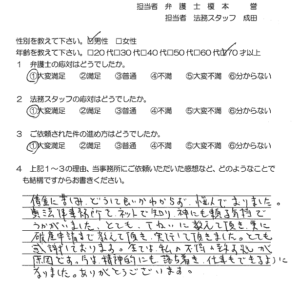 担当者 弁 護 士 榎 本 誉
担当者 法務スタッフ 成田
性別を教えて下さい。 ☑男性 □女性
年齢を教えて下さい。 □20代□30代□40代□50代□60代☑70才以上
1 弁護士の応対はどうでしたか。
①大変満足 ②満足 ③普通 ④不満 ⑤大変不満 ⑥分からない
2 法務スタッフの応対はどうでしたか。
①大変満足 ②満足 ③普通 ④不満 ⑤大変不満 ⑥分からない
3 ご依頼された件の進め方はどうでしたか。
①大変満足 ②満足 ③普通 ④不満 ⑤大変不満 ⑥分からない
4 上記1～3の理由、当事務所にご依頼いただいた感想など、どのようなことで
も結構ですからお書きください。
借金に苦しみ、どうして良いかわからず、悩んでおりました。
法律事務所をネットで知り、神にも頼る気持で
うかがいました。とても、ていねいに教えて頂き、更に
破産申請まで教えて頂き、実行して頂きました。とても
感謝しております。全ては私の不
原因です。今は精神的にも落ち着き、仕事もできるように
なりました。ありがとうございます。